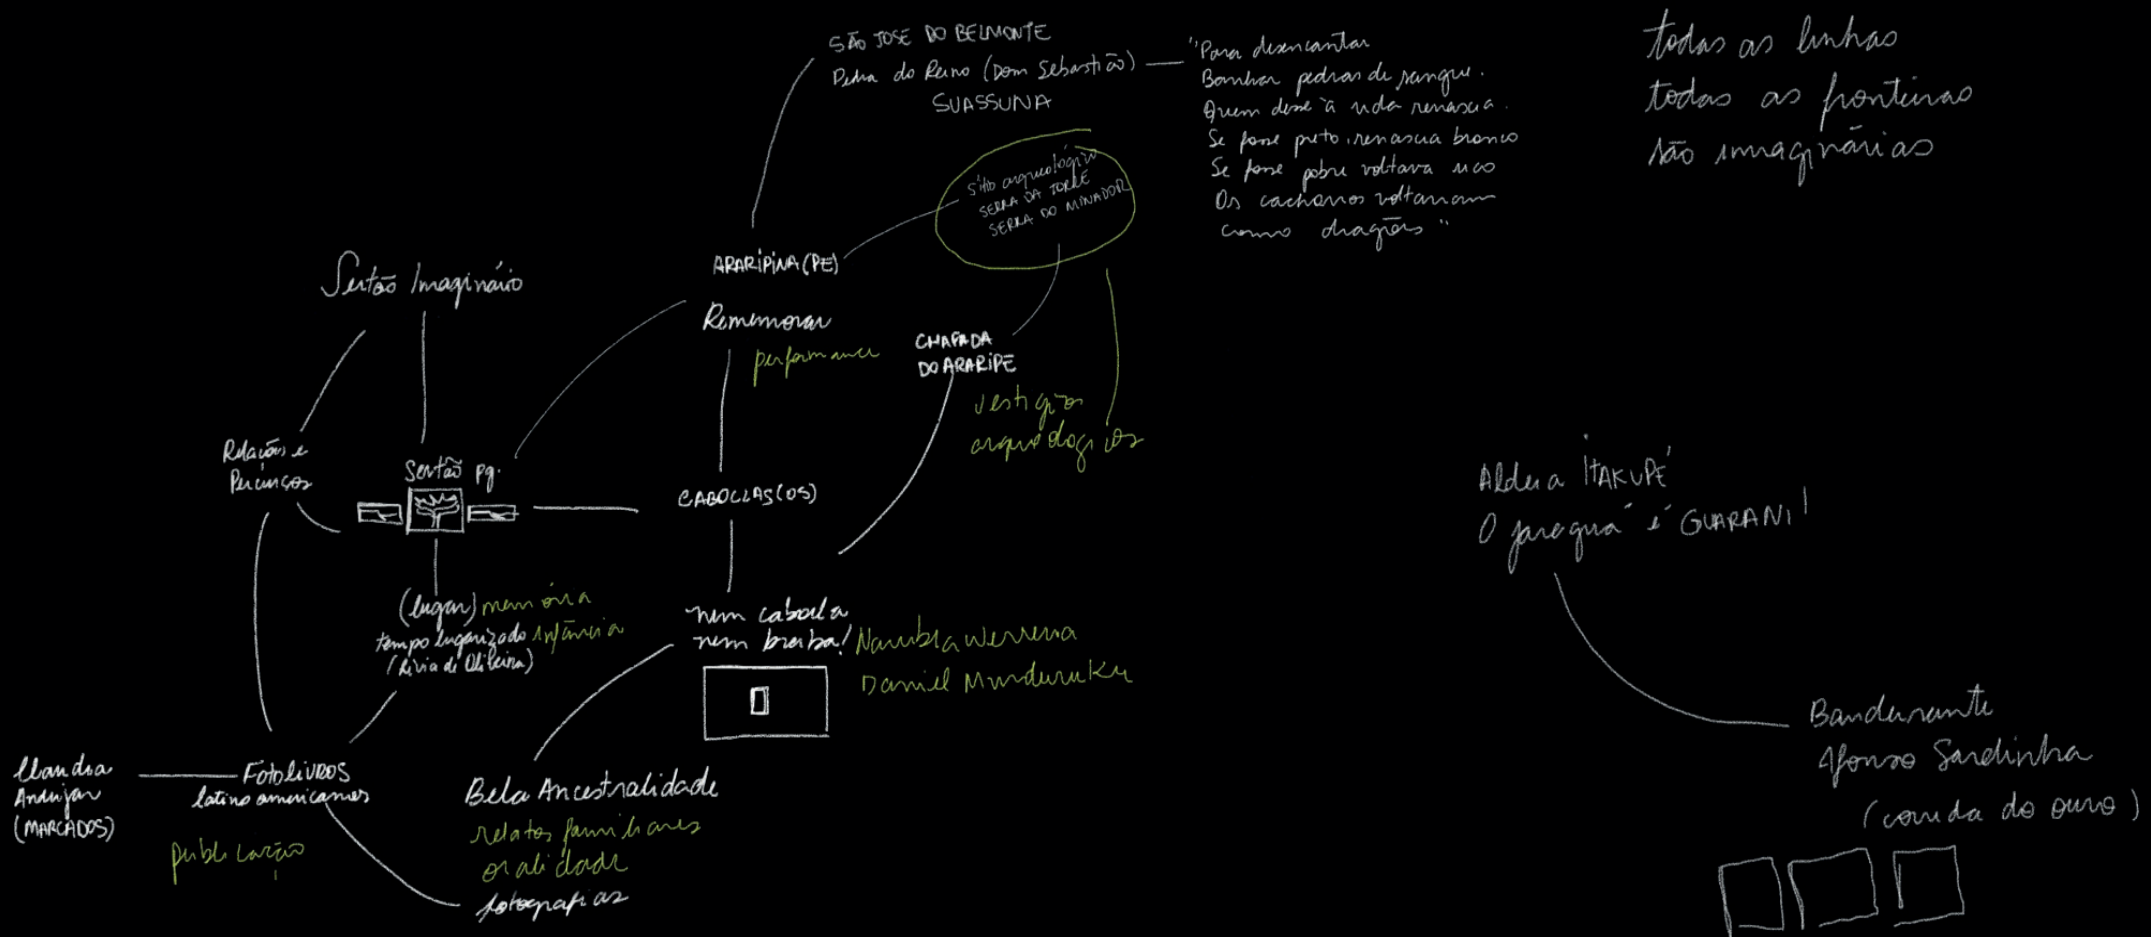 SÃO JOSE DO BELMONTE
Pedra do Reino (Dom Sebastião)
SUASSUNA
"Para desencantar
Banhar pedras de sangue.
Quem desse a vida renascia.
Se fosse preto, renascia branco
Se fosse pobre voltava rico
Os cachorros voltariam
como dragões"
todas as linhas
todas as fronteiras
são imaginárias
sítio arqueológico
SERRA DA TORRE
SERRA DO MINADOR
ARARIPINA (PE)
Rememorar
performance
Sertão Imaginário
CHAPADA
DO ARARIPE
vestígios
arqueológicos
Relações e
Percursos
Sertão pg.
CABOCLAS(OS)
Aldeia ITAKUPÉ
O jaraguá é GUARANI!
(lugar) memória
tempo lugarizado infância
(Lívia de Oliveira)
nem cabocla
nem braba!
Daniel Munduruku
Bandeirante
Afonso Sardinha
(corrida do ouro)
Claudia
Andujar
(MARCADOS)
FotoLIVROS
latino americanos
publicação
Bela Ancestralidade
relatos familiares
oralidade
fotografias